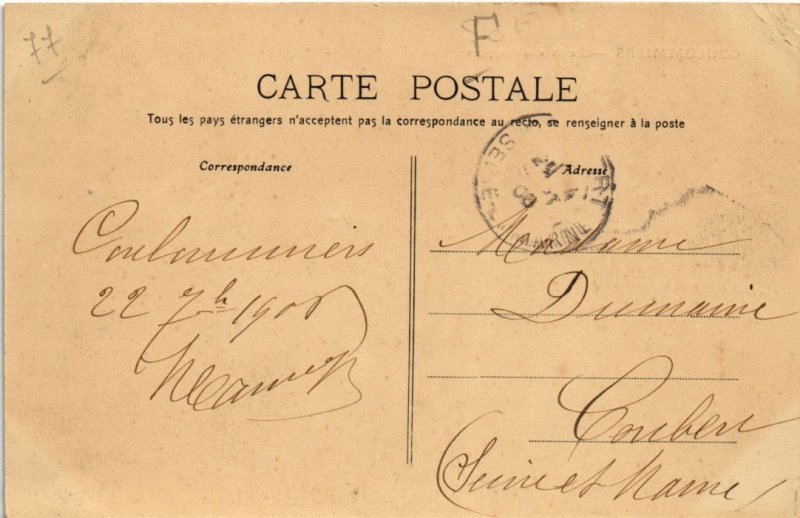 77
F
CARTE POSTALE
Tous les pays étrangers n'acceptent pas la correspondance au recto, se renseigner à la poste
Correspondance
Coulommiers
22 7b 1906
Adresse
SEINE MARNE
Madame
Dumaine
Coubert
(Seine et Marne)